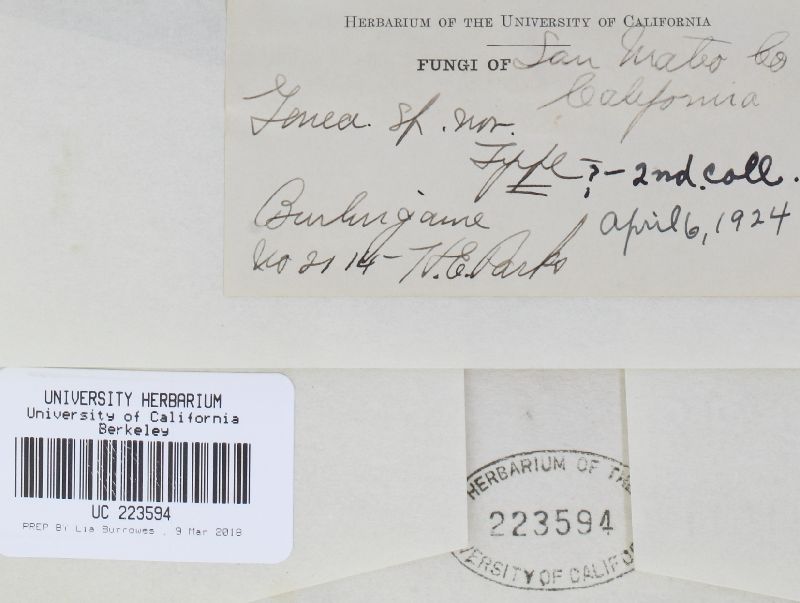 HERBARIUM OF THE UNIVERSITY OF CALIFORNIA
FUNGI OF San Mateo Co
California
Genea. sp. nov.
Type ?- 2nd. coll.
Burlingame April 6, 1924
No 2114- H.E. Parks
UNIVERSITY HERBARIUM
University of California
Berkeley
UC 223594
PREP BY Lia Burrowes , 9 Mar 2018
HERBARIUM OF THE
223594
VERSITY OF CALIFO